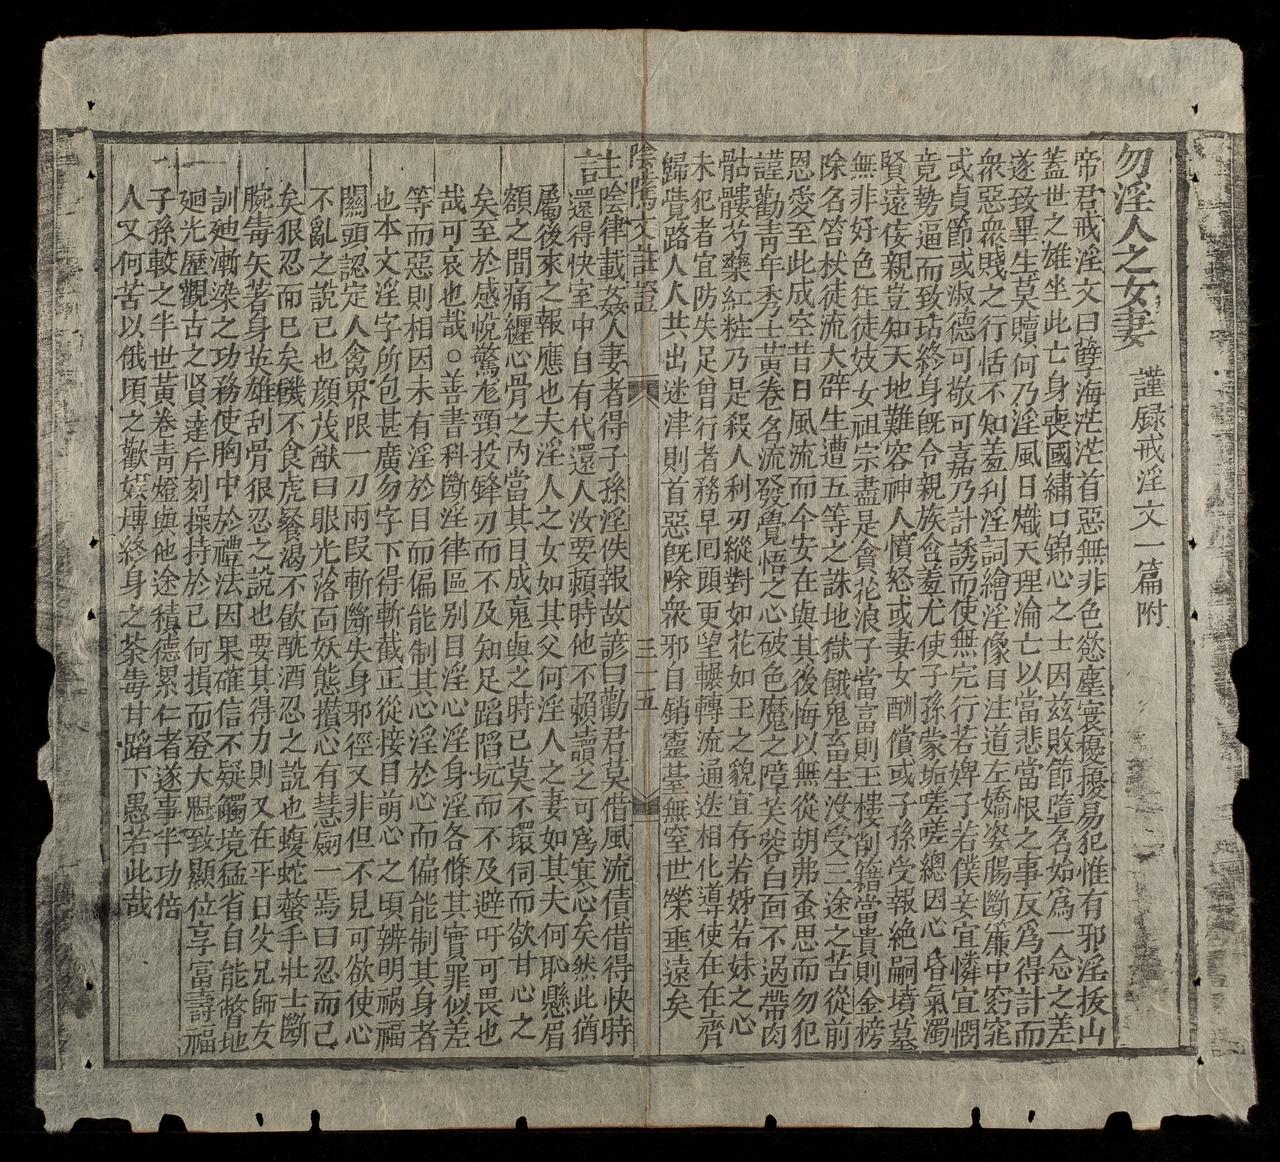 勿淫人之女妻　謹錄戒淫文一篇附
帝君戒淫文曰孽海茫茫首惡無非色慾塵寰擾擾易犯惟有邪淫拔山
蓋世之雄坐此亡身喪國繡口錦心之士因茲敗節墮名始為一念之差
遂致畢生莫贖何乃淫風日熾天理淪亡以當悲當恨之事反為得計而
衆惡衆賤之行恬不知羞刋淫詞繪淫像目注道左嬌姿腸斷簾中窈窕
或貞節或淑德可敬可嘉乃計誘而使無完行若婢子若僕妾宜憐宜憫
竟勢逼而致玷終身旣令親族含羞尤使子孫蒙垢嗟嗟總因心昏氣濁
賢遠佞親豈知天地難容神人憤怒或妻女酬償或子孫受報絶嗣墳墓
無非好色狂徒妓女祖宗盡是貪花浪子當富則玉樓削籍當貴則金榜
除名笞杖徒流大辟生遭五等之誅地獄餓鬼畜生沒受三途之苦從前
恩愛至此成空昔日風流而今安在與其後悔以無從胡弗蚤思而勿犯
謹勸青年秀士黃卷名流發覺悟之心破色魔之障芙蓉白面不過帶肉
骷髏芍藥紅粧乃是殺人利刃縱對如花如玉之貌宜存若姊若妹之心
未犯者宜防失足曾行者務早囘頭更望輾轉流通迭相化導使在在齊
歸覺路人人共出迷津則首惡旣除衆邪自銷靈臺無窒世榮垂遠矣
陰隲文註證　三十五
註陰律載姦人妻者得子孫淫佚報故諺曰勸君莫借風流債借得快時
還得快室中自有代還人汝要賴時他不賴讀之可爲寒心矣然此猶
屬後來之報應也夫淫人之女如其父何淫人之妻如其夫何恥懸眉
額之間痛纏心骨之內當其目成䰟與之時已莫不環伺而欲甘心之
矣至於感悅驚尨頸投鋒刃而不及知足蹈陷坑而不及避吁可畏也
哉可哀也哉○善書科斷淫律區别目淫心淫身淫各條其實罪似差
等而惡則相因未有淫於目而偏能制其心淫於心而偏能制其身者
也本文淫字所包甚廣勿字下得斬截正從接目萌心之頃辨明禍福
關頭認定人禽界限一刀兩段斬斷失身邪徑又非但不見可欲使心
不亂之說已也顏茂猷曰眼光落面妖態攢心有慧劍一焉曰忍而已
矣狠忍而已矣饑不食虎餐渴不飲酖酒忍之說也蝮蛇螫手壯士斷
腕毒矢著身英雄刮骨狠忍之說也要其得力則又在平日父兄師友
訓廸漸染之功務使胸中於禮法因果確信不疑觸境猛省自能瞥地
廻光歷觀古之賢達斤刻操持於己何損而登大魁致顯位享富壽福
子孫較之半世黃卷靑燈與他途積德累仁者遂事半功倍
人又何苦以俄頃之歡娛博終身之荼毒甘蹈下愚若此哉